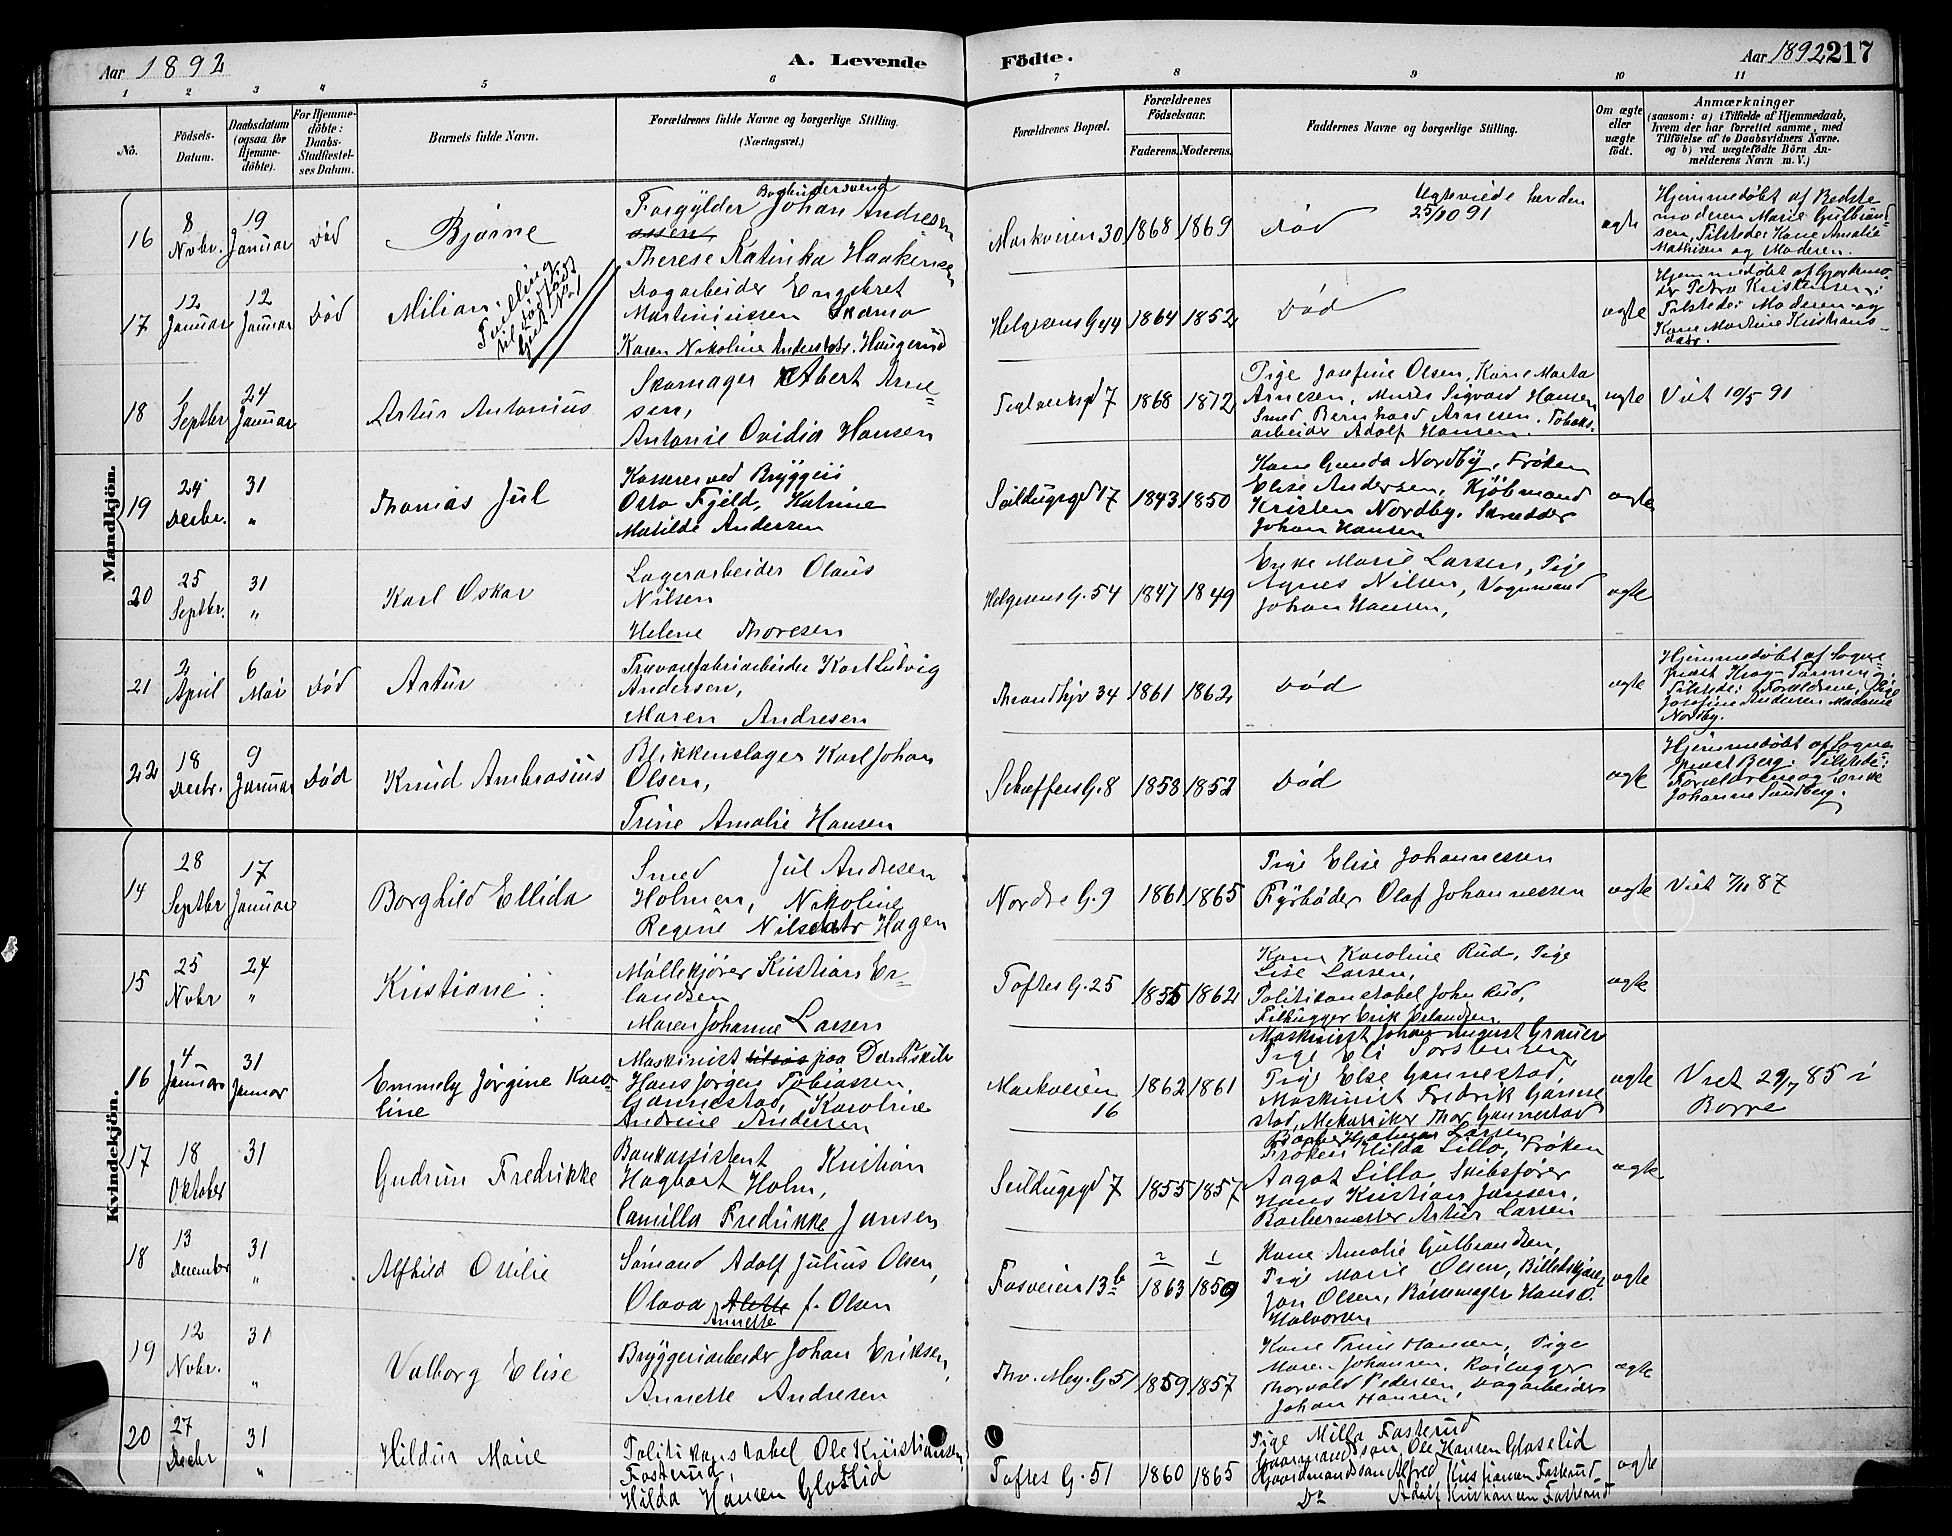 Aar 1892
A. Levende
Födte.
Aar 1892
217
1 2 3 4 5 6 7 8 9 10 11
No.
Födsels-
Datum.
Daabsdatum
(ogsaa for
Hjemme-
döbte).
For Hjemme-
döbte:
Daabs-
Stadfæstel-
ses Datum.
Barnets fulde Navn.
Forældrenes fulde Navne og borgerlige Stilling.
(Næringsvei.)
Forældrenes Bopæl.
Forældrenes
Födselsaar.
Faderens. Moderens.
Faddernes Navne og borgerlige Stilling.
Om ægte
eller
uægte
födt.
Anmærkninger
(saasom: a) i Tilfælde af Hjemmedaab,
hvem der har forrettet samme, med
Tilföielse af to Daabsvidners Navne.
og b) ved uægtefödte Börn An-
melderens Navn m. V.)
Mandkjön.
16
8
Novbr.
19
Januar
Död
Bjarne
Bogbindersvend
Forgylder Johan Andresen
Therese Katinka Haakensen
Markveien 30
1868
1869
Död
Ægteviede herden
25/10 91
ægte
Hjemmedøbt af Bedste
moderen Marie Gulbrand
sen, Tilstede: Kone Amalie
Mathisen og Moderen.
17
12
Januar
12
Januar
Död
Milian
Tvilling
til dödfödt
Dagarbeider Engebret
Martiniussen Skamo
Karen Nikoline Andersdatr. Haugerud
Helgesens G 44
1864
1852
Död
ægte
Hjemmedøbt af Gjordemo-
der Petra Kristensen;
Tilstede: Moderen og
Kone Martine Kristians-
datr.
18
1
Septbr
24
Januar
Artur Antonius
Skomager Albert Arne-
sen,
Antonie Ovidia Hansen
Teglverksgd 7
1868
1872
Pige Josefine Olsen, Kone Marta
Arnesen, Murer Sigvard Hansen
Smed Bernhard Arnesen, Tobaks-
arbeider Adolf Hansen.
ægte
Viet 10/5 91
19
24
Decbr.
31
"
Thomas Jul
Kasserer ved Bryggeri
Otto Fjeld, Katrine
Matilde Andersen
Seildugsgd 17
1843
1850
Kone Gunda Nordby, Frøken
Elise Andersen, Kjöbmand
Kristen Nordby, Skrædder
Johan Hansen
ægte
20
25
Septbr.
31
"
Karl Oskar
Lagerarbeider Olaus
Nilsen
Helene Thoresen
Helgesens G. 54
1847
1849
Enke Marie Larsen, Pige
Agnes Nilsen, Vognmand
Johan Hansen,
ægte
21
2
April
6
Mai
Död
Artur
Trævarefabrikarbeider Karl Ludvig
Andersen,
Maren Andresen
Trondhjv 34
1861
1862
Död
ægte
Hjemmedøbt af Sogne-
præst Krag-Tørning.
Tilstede: Forældrene, Pige
Josefine Andersen Madame
Nordby.
22
18
Decbr.
9
Januar
Död
Knud Ambrosius
Blikkenslager Karl Johan
Olsen,
Trine Amalie Hansen
Schæffers G. 8
1858
1852
Död
ægte
Hjemmedøbt af Sogne
præst Berg. Tilstede:
Forældrene og Enke
Johanne Sundberg.
Kvindekjön.
14
28
Septbr
17
Januar
Borghild Ellida
Smed Jul Andresen
Holmen, Nikoline
Regine Nilsdatr Hagen
Nordre G. 9
1861
1865
Pige Elise Johannessen
Fyrbøder Olaf Johannessen
ægte
Viet 7/11 87
15
25
Novbr
24
"
Kristiane
Møllekjører Kristian Er-
landsen
Maren Johanne Larsen
Toftes G. 25
1855
1862
Kone Karoline Rud, Pige
Lise Larsen,
Politikonstabel John Rud,
Filhugger Erik Erlandsen.
ægte
16
4
Januar
31
Januar
Emmely Jörgine Karo-
line
Maskinist paa Dampskib
Hans Jörgen Tobiassen
Gannestad, Karoline
Andrine Andersen
Markveien
16
1862
1861
Maskinist Johan August Grauers
Pige Eli Torstensen
Pige Else Gannestad,
Maskinist Fredrik Ganne
stad, Mekaniker Thor Gannestad
ægte
Viet 29/7 85 i
Borre
17
18
Oktober
31
Gudrun Fredrikke
Bankassistent Kristian
Hagbart Holm,
Camilla Fredrikke Jansen
Seildugsgd 7
1855
1857
Frøken Hilda Lillo, Frøken
Aagot Lillo, Skibsfører
Hans Kristian Jansen,
Barbermester Artur Larsen
ægte
18
13
December
31
"
Alfhild Otilie
Sømand Adolf Julius Olsen,
Olava Alette f. Olsen
Annette
Fosveien 13 b
2
1863
1
1859
Kone Amalie Gulbrandsen,
Pige Marie Olsen, Billedskjærer
Jon Olsen, Børsemager Hans O.
Halvorsen
ægte
19
12
Novbr.
31
"
Valborg Elise
Bryggeriarbeider Johan Eriksen,
Annette Andresen
Thv. Mey. G 51
1859
1857
Kone Trine Hansen, Pige
Maren Johansen,
Thorvald Pedersen, Dagarbeider
Johan Hansen
ægte
20
27
Decbr
31
"
Hildur Marie
Politikonstabel Ole Kristiansen
Fosterud,
Hilda Hansen Gloslid
Toftes G. 51
1860
1865
Pige Milla Fosterud
Gaardmandssøn Ole Hansen Gloslid
Gaardmandssøn Alfred Kristiansen Fosterud
Do Adolf Kristiansen Fosterud
ægte